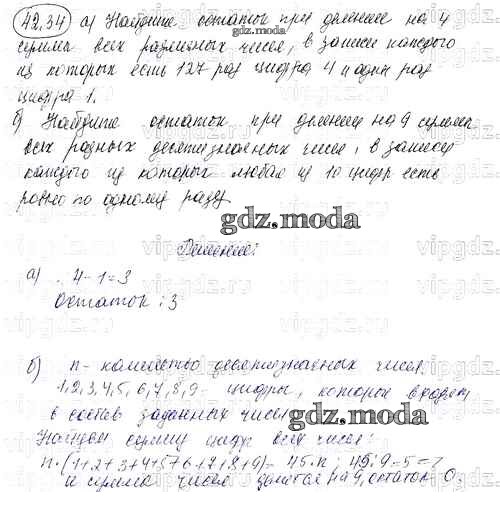 42.34 а) Найдите остаток при делении на 4
суммы всех различных чисел, в записи каждого
из которых есть 127 раз цифра 4 и один раз
цифра 1.
б) Найдите остаток при делении на 9 суммы
всех разных десятизначных чисел, в записи
каждого из которых любая из 10 цифр есть
ровно по одному разу.
gdz.moda
Решение:
а) 4-1=3
Остаток: 3
б) n - количество десятизначных чисел.
1,2,3,4,5,6,7,8,9 - цифры, которые входят
в состав заданных чисел
gdz.moda
Найдем сумму цифр всех чисел:
n·(1+2+3+4+5+6+7+8+9)=45·n; 45:9=5=>
и сумма чисел делится на 9, остаток 0.